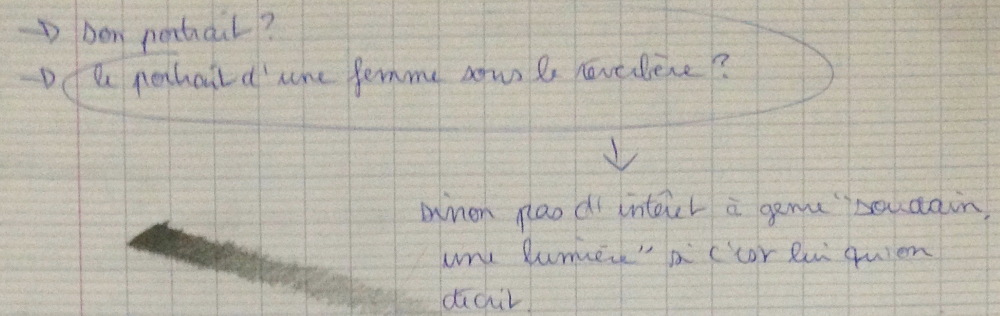 → Son portrait ?
→ le portrait d'une femme sous le réverbère ?
↓
sinon pas d'intérêt à genre "soudain,
une lumière" si c'est lui qu'on
décrit.